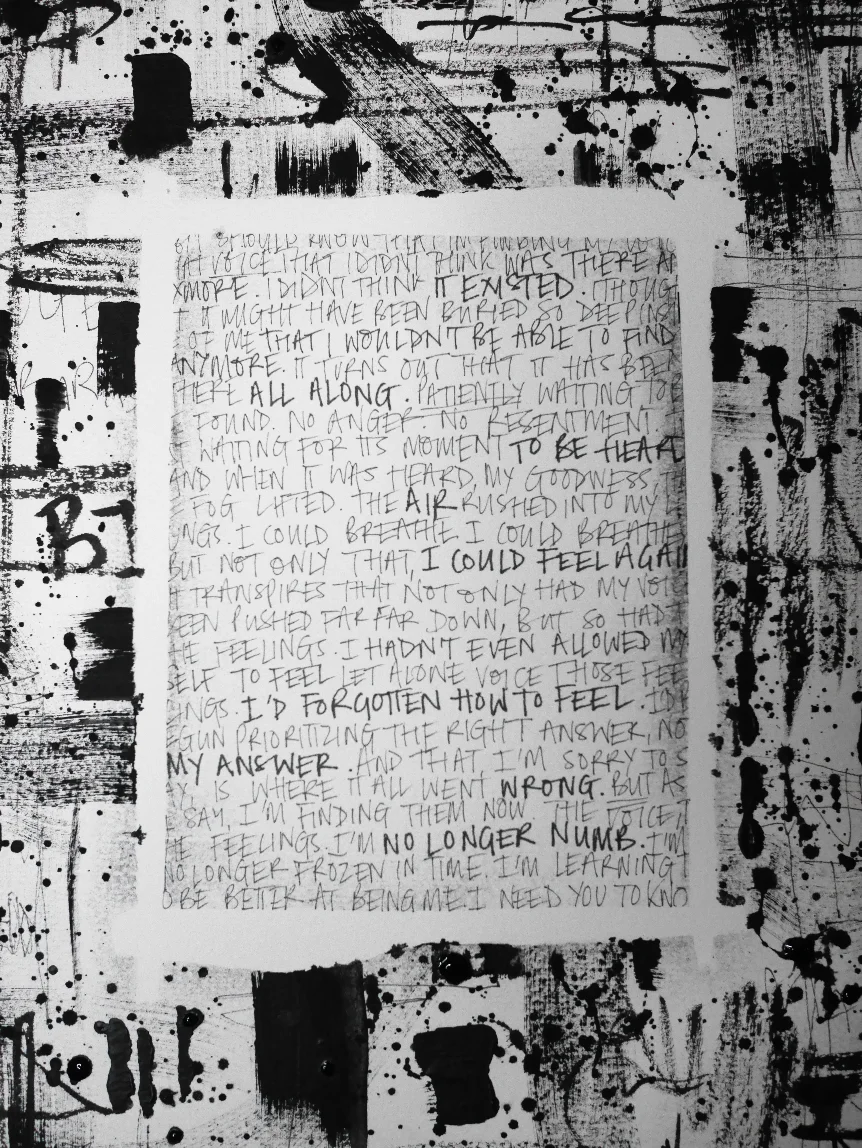 SHOULD KNOW THAT I'M FINDING MY VOIC
AT VOICE THAT I DIDN'T THINK WAS THERE A
YMORE. I DIDN'T THINK IT EXISTED. I THOUG
T IT MIGHT HAVE BEEN BURIED SO DEEP INS
OF ME THAT I WOULDN'T BE ABLE TO FIND
ANYMORE. IT TURNS OUT THAT IT HAS BEE
HERE ALL ALONG. PATIENTLY WAITING TO B
FOUND. NO ANGER. NO RESENTMENT.
T WAITING FOR ITS MOMENT TO BE HEARD
AND WHEN IT WAS HEARD, MY GOODNESS
FOG LIFTED. THE AIR RUSHED INTO MY L
UNGS. I COULD BREATHE. I COULD BREATHE
BUT NOT ONLY THAT, I COULD FEEL AGAIN
IT TRANSPIRES THAT NOT ONLY HAD MY VOIC
EEN PUSHED FAR FAR DOWN, BUT SO HAD T
HE FEELINGS. I HADN'T EVEN ALLOWED MY
SELF TO FEEL LET ALONE VOICE THOSE FEE
LINGS. I'D FORGOTTEN HOW TO FEEL. I'D B
EGUN PRIORITIZING THE RIGHT ANSWER, NO
MY ANSWER. AND THAT I'M SORRY TO S
AY, IS WHERE IT ALL WENT WRONG. BUT AS
I SAY, I'M FINDING THEM NOW. THE VOICE, T
HE FEELINGS. I'M NO LONGER NUMB. I'M
NO LONGER FROZEN IN TIME. I'M LEARNING T
O BE BETTER AT BEING ME. I NEED YOU TO KNO